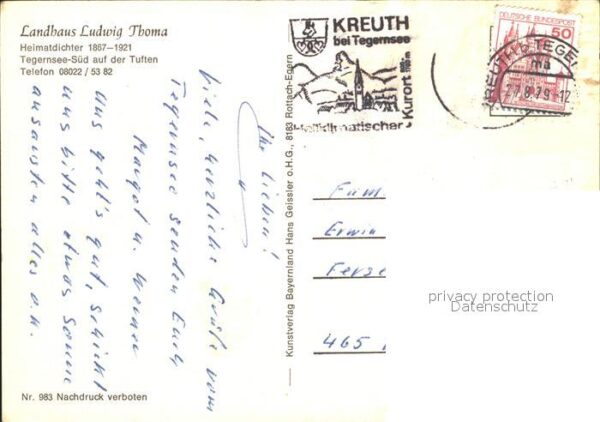 Landhaus Ludwig Thoma
Heimatdichter 1867–1921
Tegernsee-Süd auf der Tuften
Telefon 08022 / 53 82
Ihr Lieben!
Viele, herzliche Grüße vom
Tegernsee senden Euch
Margot u. Werner
Uns geht's gut, schickt
uns bitte etwas Sonne
ansonsten alles o.k.
Nr. 983 Nachdruck verboten
Kunstverlag Bayernland Hans Geissler o.H.G., 8183 Rottach-Egern
KREUTH
bei Tegernsee
Heilklimatischer
Kurort
DEUTSCHE BUNDESPOST
50
KREUTH B TEGE
27.8.79-12
Fam
Erwin
465
privacy protection
Datenschutz